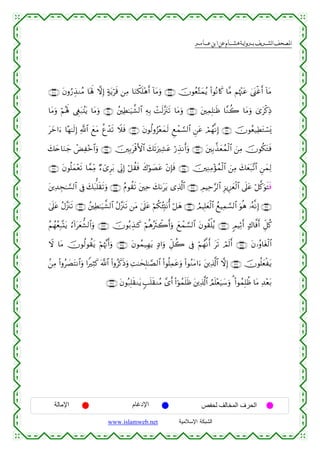 المصحف الشريف برواية هشام عن ابن عامر
مَآ أَغْنَىٰ عَنْهُم مَّا كَانُوا۟ يُمَتَّعُونَ وَمَآ أَهْلَكْنَا مِن قَرْيَةٍ إِلَّا لَهَا مُنذِرُونَ
ذِكْرَىٰ وَمَا كُنَّا ظَٰلِمِينَ وَمَا تَنَزَّلَتْ بِهِ ٱلشَّيَٰطِينُ وَمَا يَنۢبَغِى لَهُمْ وَمَا
يَسْتَطِيعُونَ إِنَّهُمْ عَنِ ٱلسَّمْعِ لَمَعْزُولُونَ فَلَا تَدْعُ مَعَ ٱللَّهِ إِلَٰهًا ءَاخَرَ
فَتَكُونَ مِنَ ٱلْمُعَذَّبِينَ وَأَنذِرْ عَشِيرَتَكَ ٱلْأَقْرَبِينَ وَٱخْفِضْ جَنَاحَكَ
لِمَنِ ٱتَّبَعَكَ مِنَ ٱلْمُؤْمِنِينَ فَإِنْ عَصَوْكَ فَقُلْ إِنِّى بَرِىٓءٌ مِّمَّا تَعْمَلُونَ
فَتَوَكَّلْ عَلَى ٱلْعَزِيزِ ٱلرَّحِيمِ ٱلَّذِى يَرَىٰكَ حِينَ تَقُومُ وَتَقَلُّبَكَ فِى ٱلسَّٰجِدِينَ
إِنَّهُۥ هُوَ ٱلسَّمِيعُ ٱلْعَلِيمُ هَلْ أُنَبِّئُكُمْ عَلَىٰ مَن تَنَزَّلُ ٱلشَّيَٰطِينُ تَنَزَّلُ عَلَىٰ
كُلِّ أَفَّاكٍ أَثِيمٍ يُلْقُونَ ٱلسَّمْعَ وَأَكْثَرُهُمْ كَٰذِبُونَ وَٱلشُّعَرَآءُ يَتَّبِعُهُمُ
ٱلْغَاوُۥنَ أَلَمْ تَرَ أَنَّهُمْ فِى كُلِّ وَادٍ يَهِيمُونَ وَأَنَّهُمْ يَقُولُونَ مَا لَا
يَفْعَلُونَ إِلَّا ٱلَّذِينَ ءَامَنُوا۟ وَعَمِلُوا۟ ٱلصَّٰلِحَٰتِ وَذَكَرُوا۟ ٱللَّهَ كَثِيرًا وَٱنتَصَرُوا۟ مِنۢ
بَعْدِ مَا ظُلِمُوا۟ وَسَيَعْلَمُ ٱلَّذِينَ ظَلَمُوٓا۟ أَىَّ مُنقَلَبٍ يَنقَلِبُونَ
الحرف المخالف لحفص الإدغام الإمالة
الشبكة الإسلامية www.islamweb.net